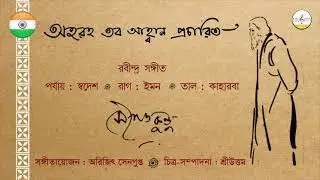 অহরহ তব আহ্বান প্রচারিত
রবীন্দ্র সঙ্গীত
পর্যায় : স্বদেশ রাগ : ইমন তাল : কাহারবা
সঙ্গীতায়োজন : অরিজিৎ সেনগুপ্ত চিত্র-সম্পাদনা : শ্রীউত্তম